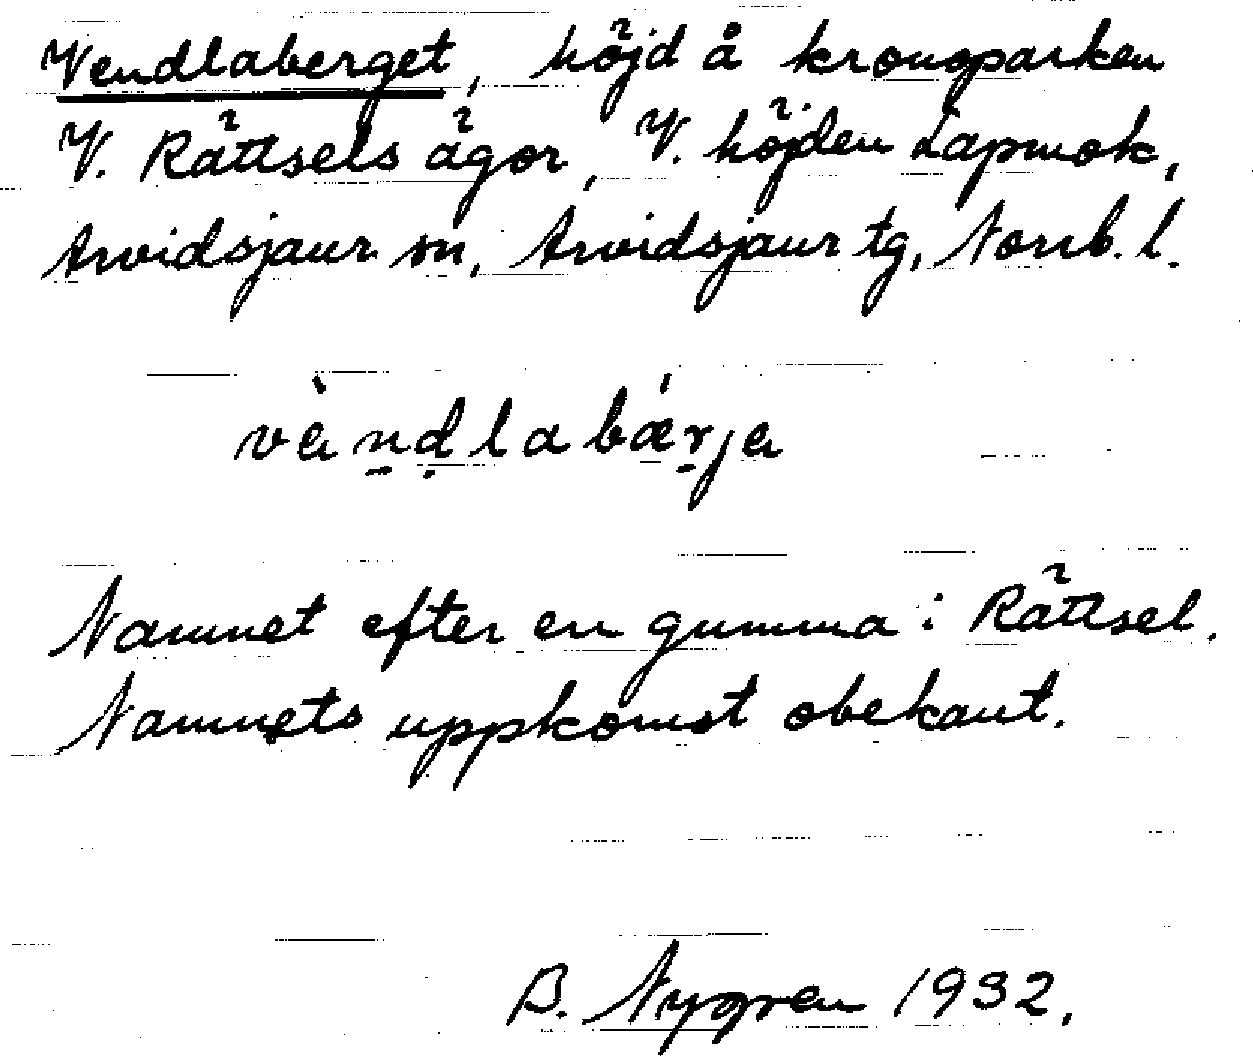 Vendlaberget, höjd å kronoparken
V. Rättsels ägor, V. höjden Lapmok,
Arvidsjaur sn, Arvidsjaur tg, Norrb. l.
vàṉḍlabǽṟja
Namnet efter en gumma i Rättsel.
Namnets uppkomst obekant.
B. Nygren 1932.